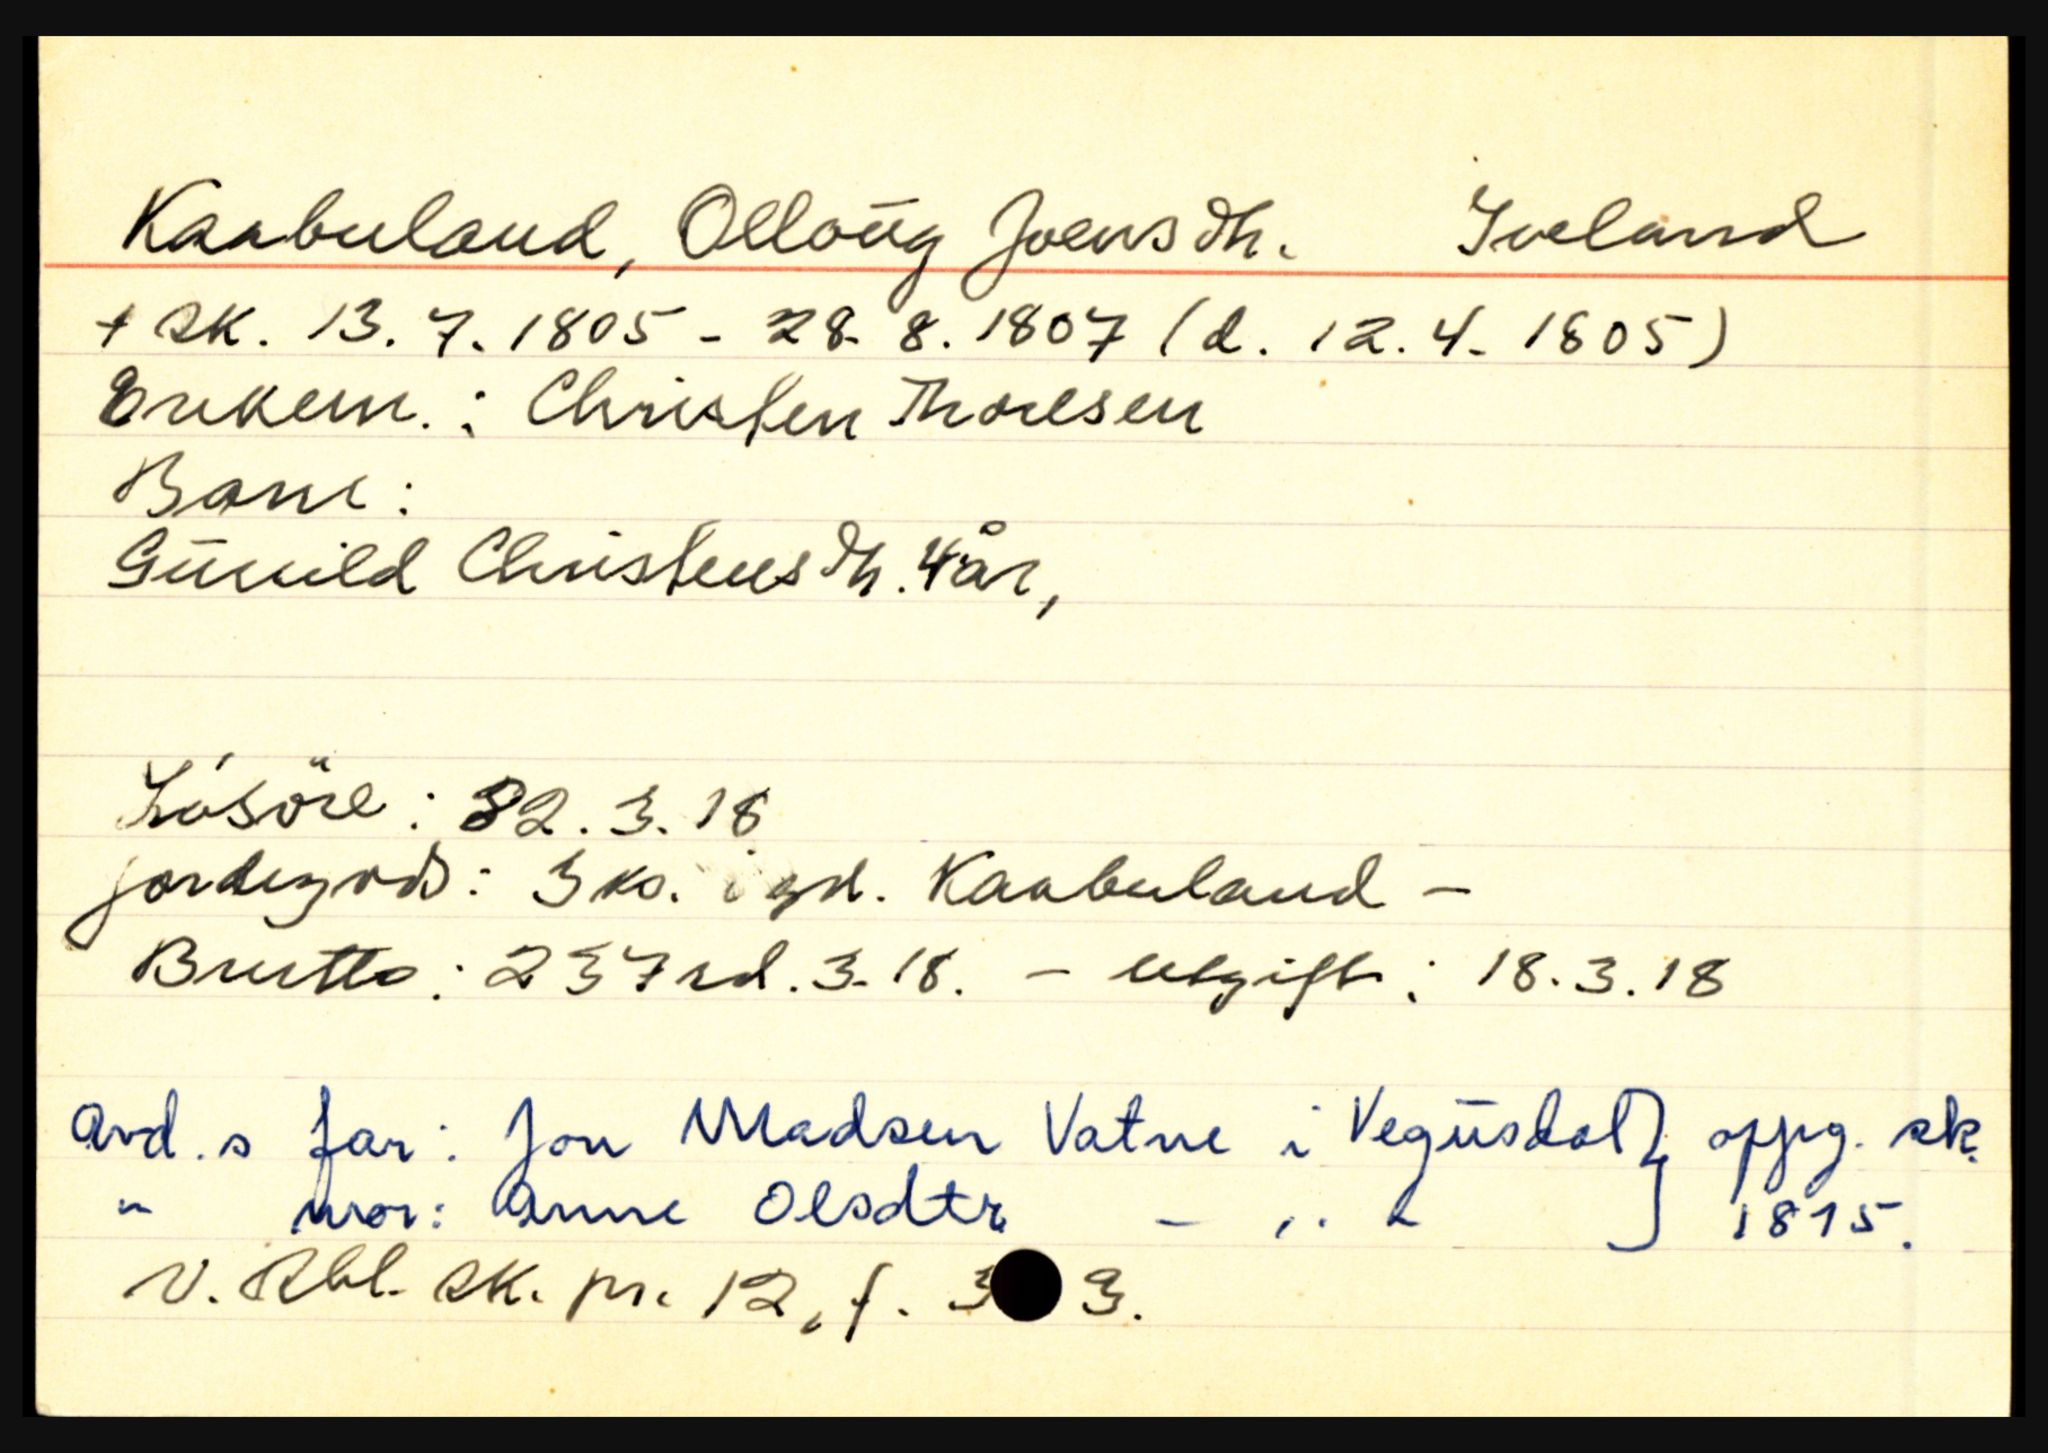 Kaabuland, Olloŭg Joensdtr. Iveland
+ sk. 13.7.1805 - 28.8.1807 (d. 12.4.1805)
Enkem.: Christen Thorsen
Barn:
Gŭnild Christensdtr. 4 år,
Lösöre: 82.3.18
jordegods: 3 ks. i gd. Kaabuland -
Brutto: 237 rd. 3.18. - utgift: 18.3.18
avd.s far: Jon Madsen Vatne i Vegŭsdal } oppg. sk.
" mor: Anne Olsdtr - " - } 1815.
N. Rbl. sk. pr. 12, f. 3 3.